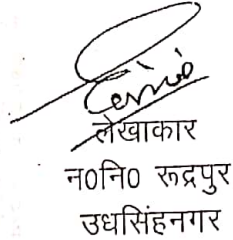 लेखाकार
न0नि0 रूद्रपुर
उधसिंहनगर